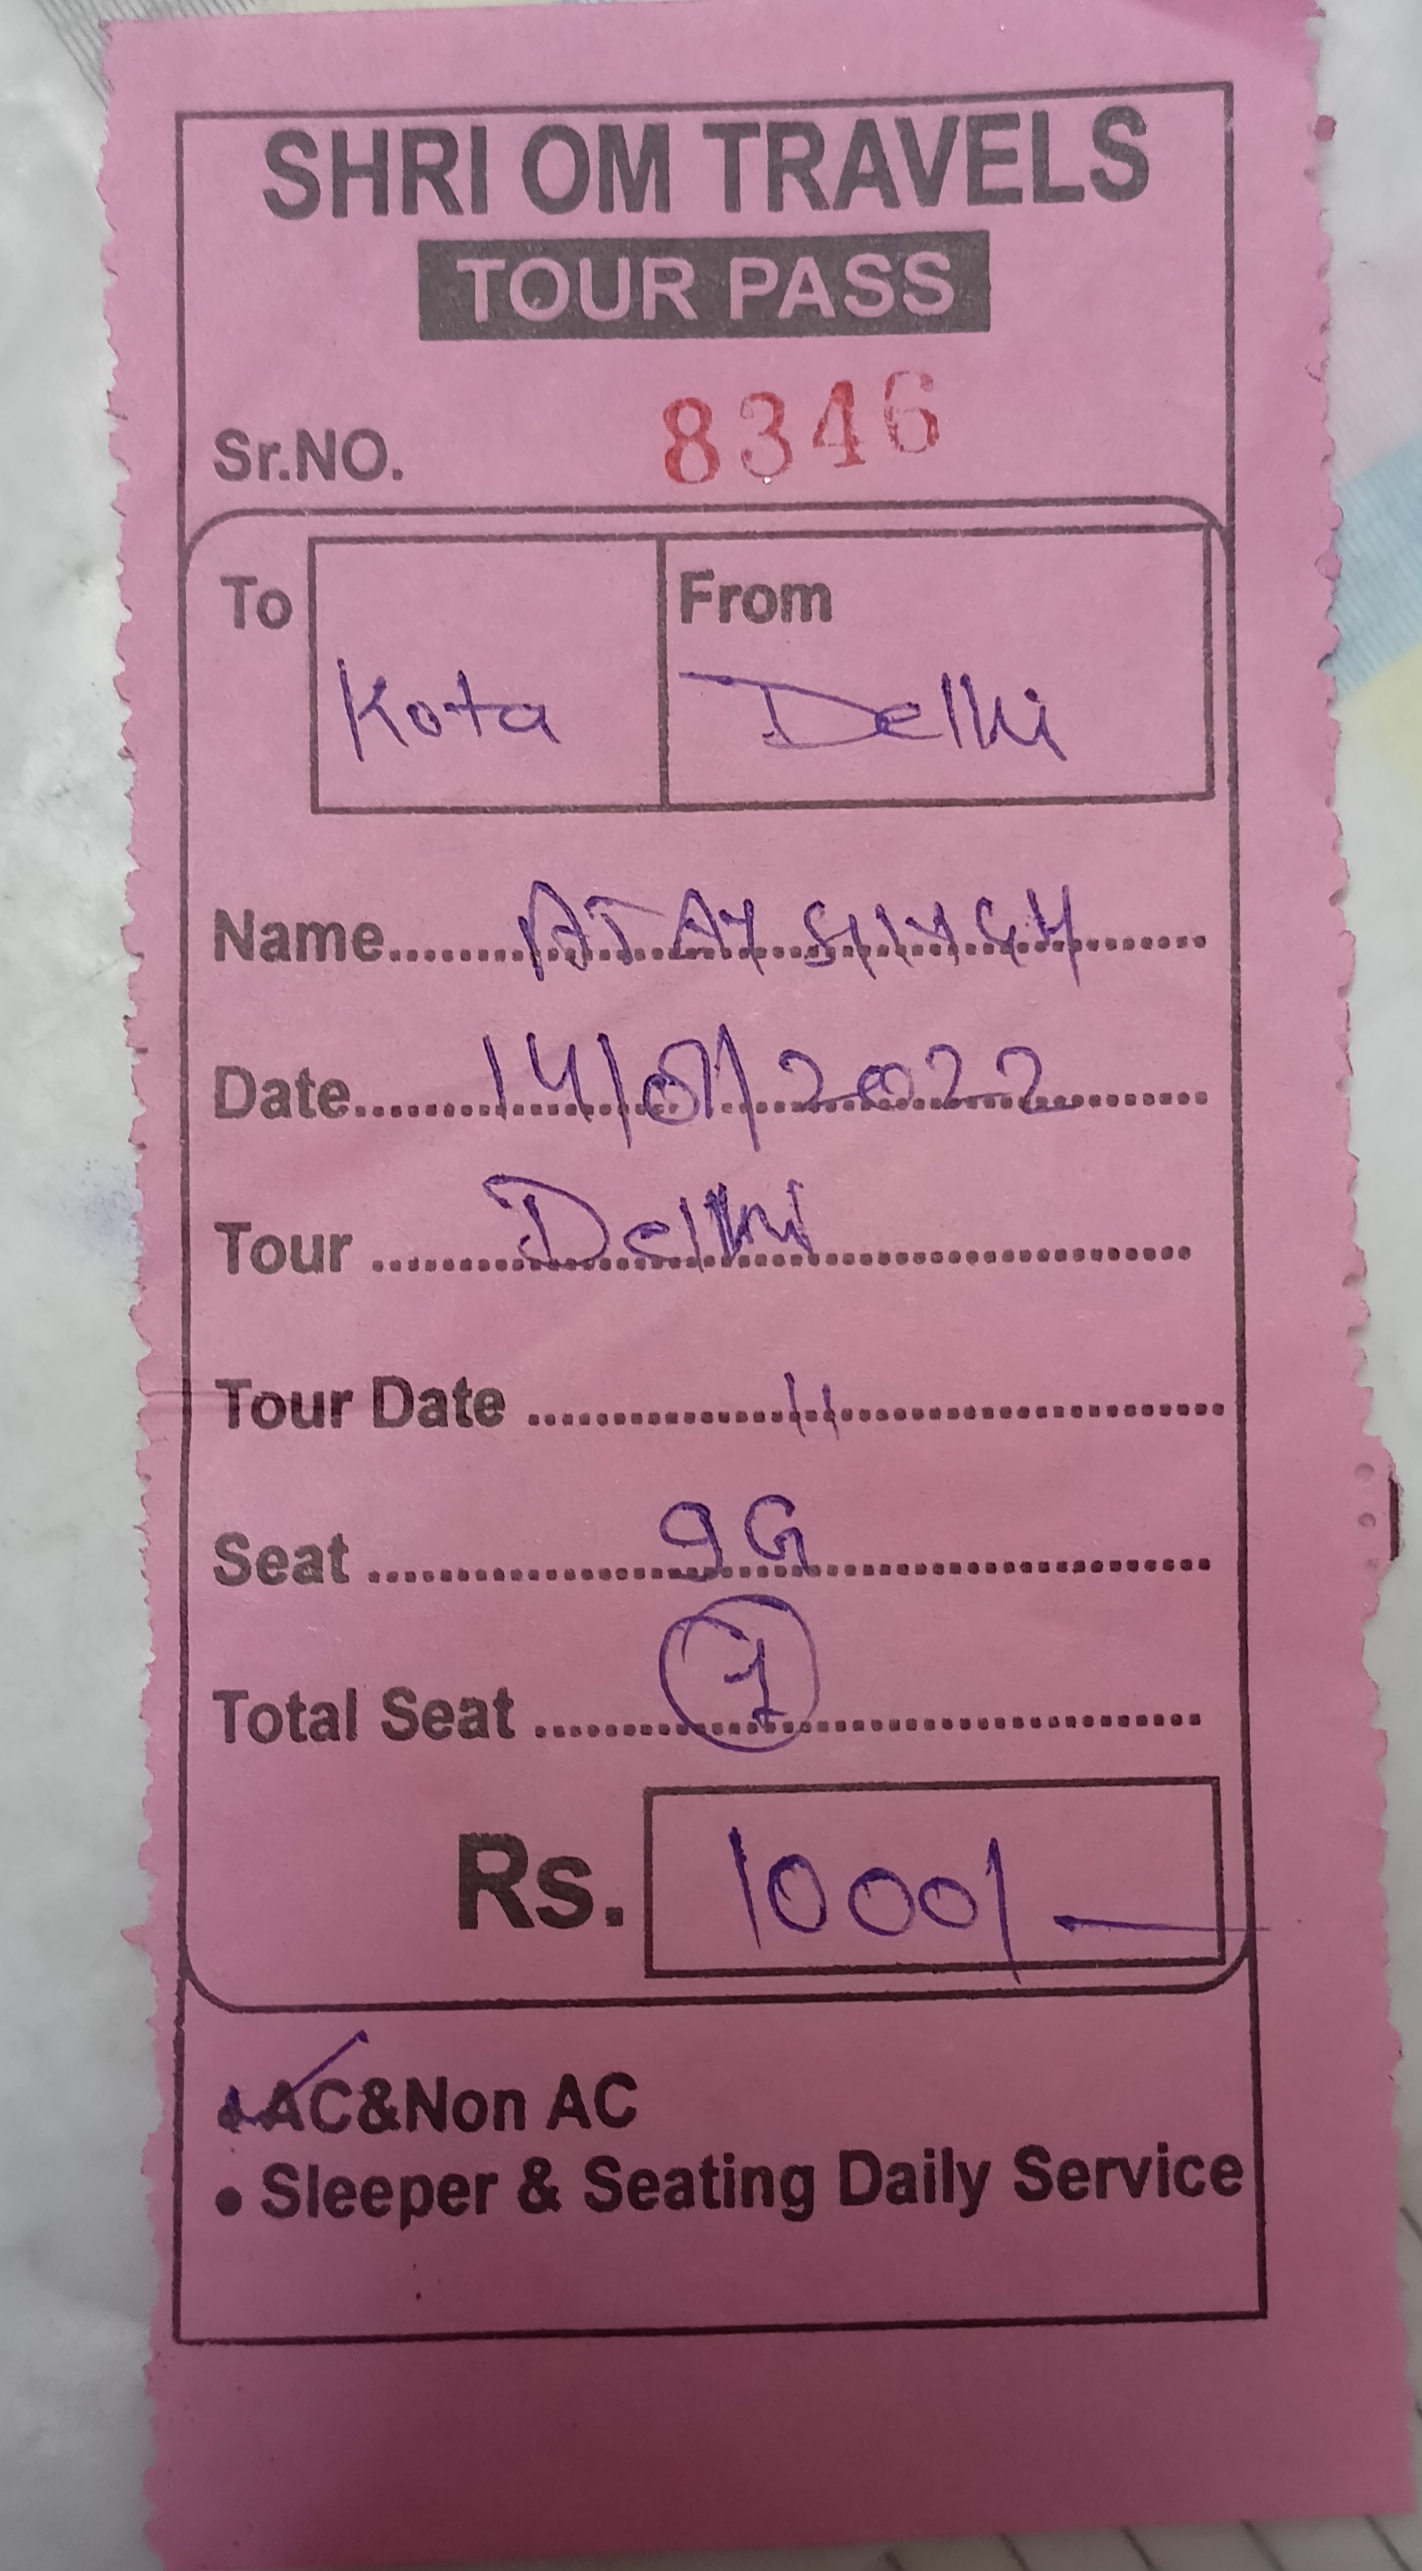 SHRI OM TRAVELS
TOUR PASS
Sr.NO. 8346
To Kota From Delhi
Name AJAY SINGH
Date 14/07/2022
Tour Delhi
Tour Date 11
Seat 9G
Total Seat 1
Rs. 1000/-
• AC&Non AC
• Sleeper & Seating Daily Service